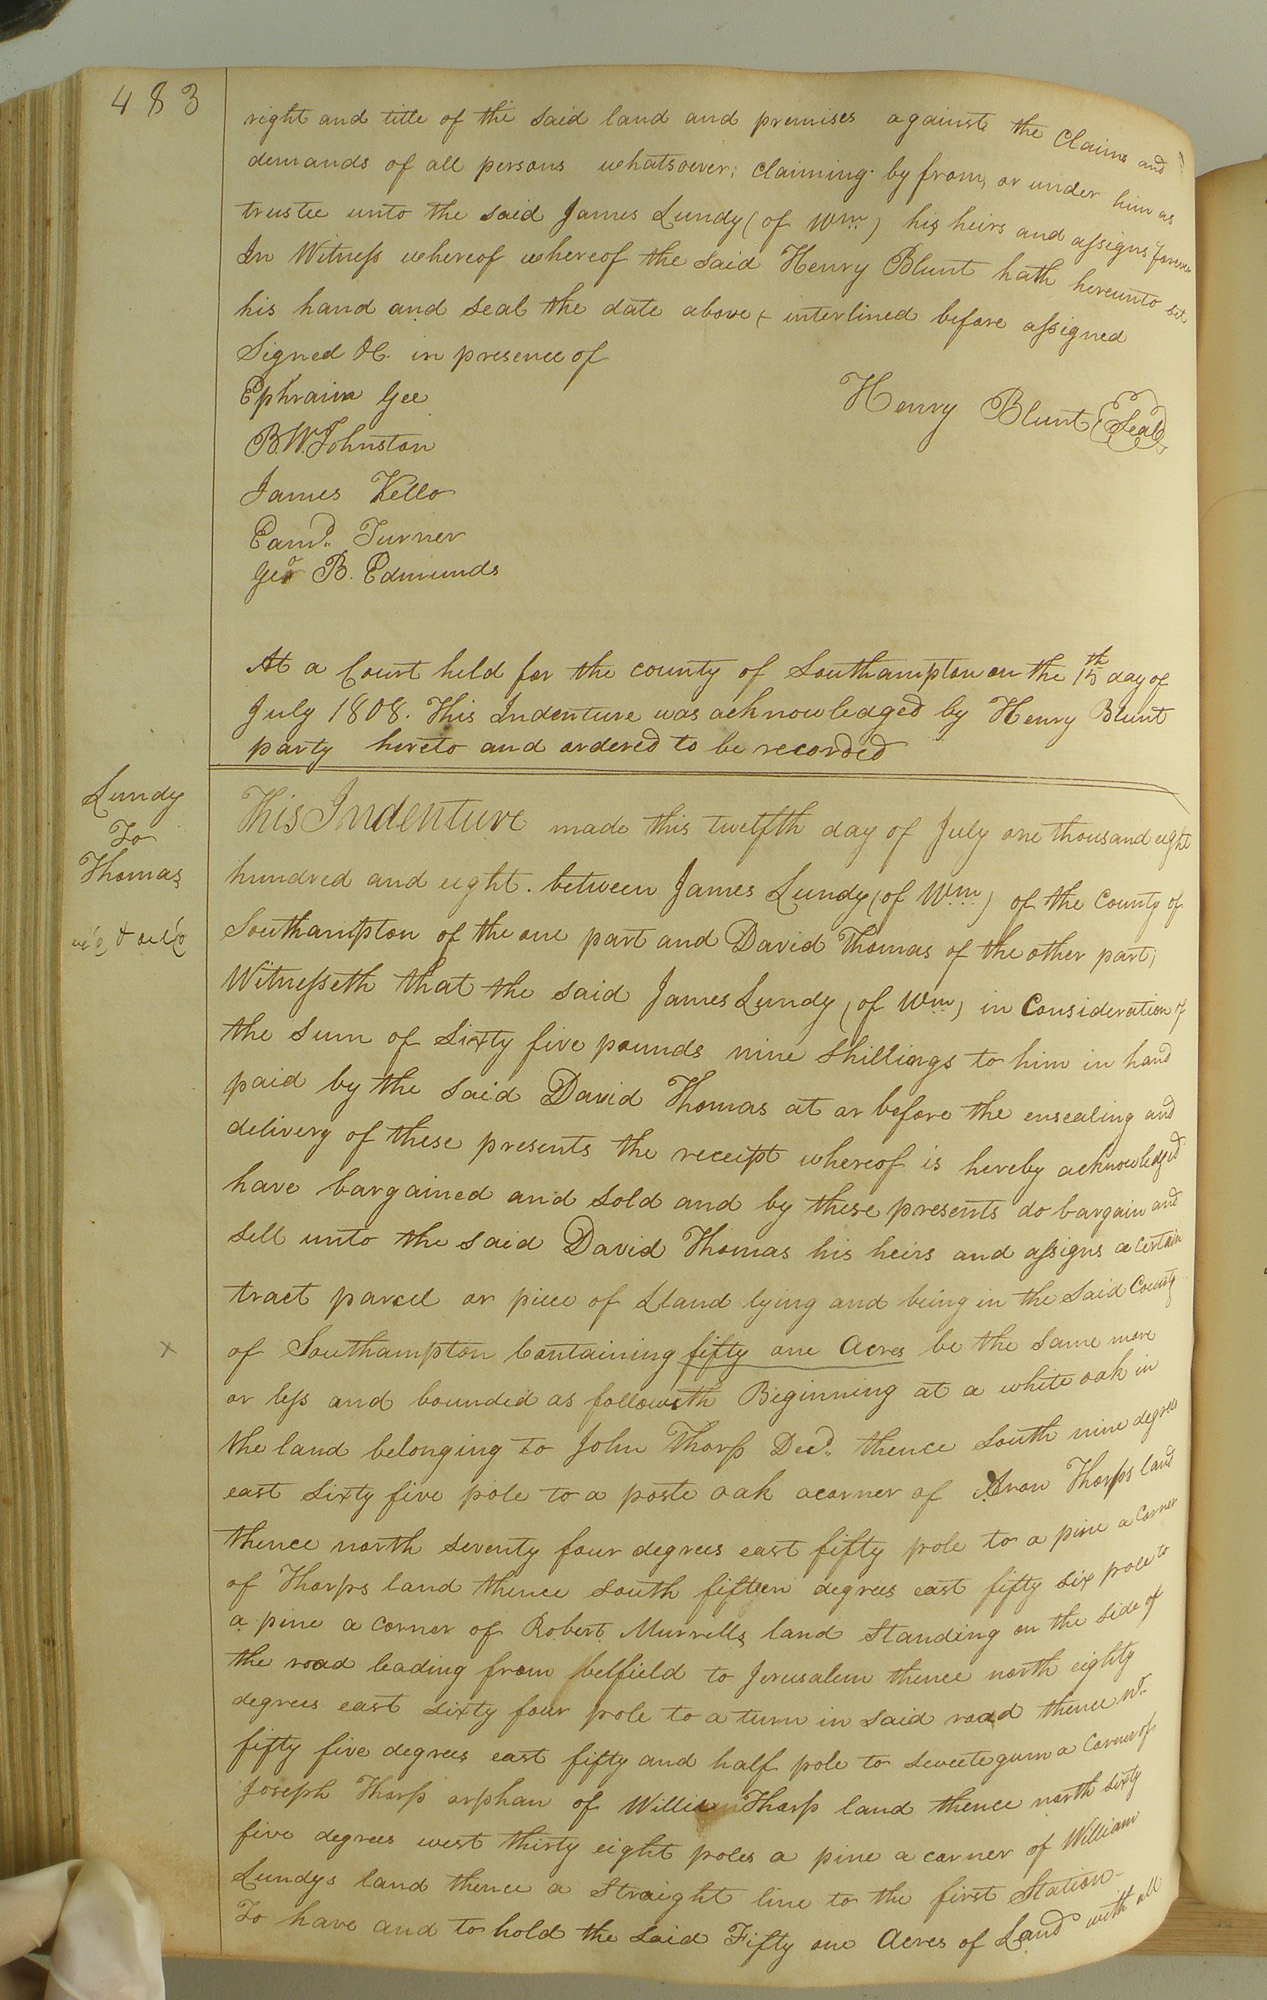 483
right and title of the said land and premises against the claims and
demands of all persons whatsoever, claiming by from, or under him as
trustee unto the said James Lundy (of Wm) his heirs and assigns forever
In Witness whereof whereof the said Henry Blunt hath hereunto set
his hand and seal the date above & interlined before assigned
Signed &C. in presence of
Henry Blunt (Seal)
Ephraim Gee
B.W. Johnston
James Kello
Edmd. Turner
Geo B. Edmunds
At a Court held for the county of Southampton on the 15th day of
July 1808. This Indenture was acknowledged by Henry Blunt
party hereto and ordered to be recorded
Lundy
To
Thomas
This Indenture made this twelfth day of July one thousand eight
hundred and eight. between James Lundy (of Wm) of the County of
Southampton of the one part and David Thomas of the other part,
Witnesseth that the said James Lundy (of Wm) in Consideration of
the sum of Sixty five pounds nine shillings to him in hand
paid by the said David Thomas at or before the ensealing and
delivery of these presents the receipt whereof is hereby acknowledged
have bargained and sold and by these presents do bargain and
sell unto the said David Thomas his heirs and assigns a certain
tract parcel or piece of Lland lying and being in the said County
x
of Southampton Containing fifty one Acres be the same more
or less and bounded as followeth Beginning at a white oak in
the land belonging to John Tharp Decd. thence South nine degrees
east sixty five pole to a poste oak acorner of Aron Tharps land
thence north seventy four degrees east fifty pole to a pine a corner
of Tharps land thence south fifteen degrees east fifty six pole to
a pine a corner of Robert Murrells land Standing on the side of
the road leading from belfield to Jerusalem thence north eighty
degrees east sixty four pole to a turn in said road thence nr.
fifty five degrees east fifty and half pole to sweetegum a corner of
Joseph Tharp orphan of William Tharp land thence north sixty
five degrees west thirty eight poles a pine a corner of William
Lundys land thence a Straight line to the first Station-
To have and to hold the said Fifty one Acres of Land with all